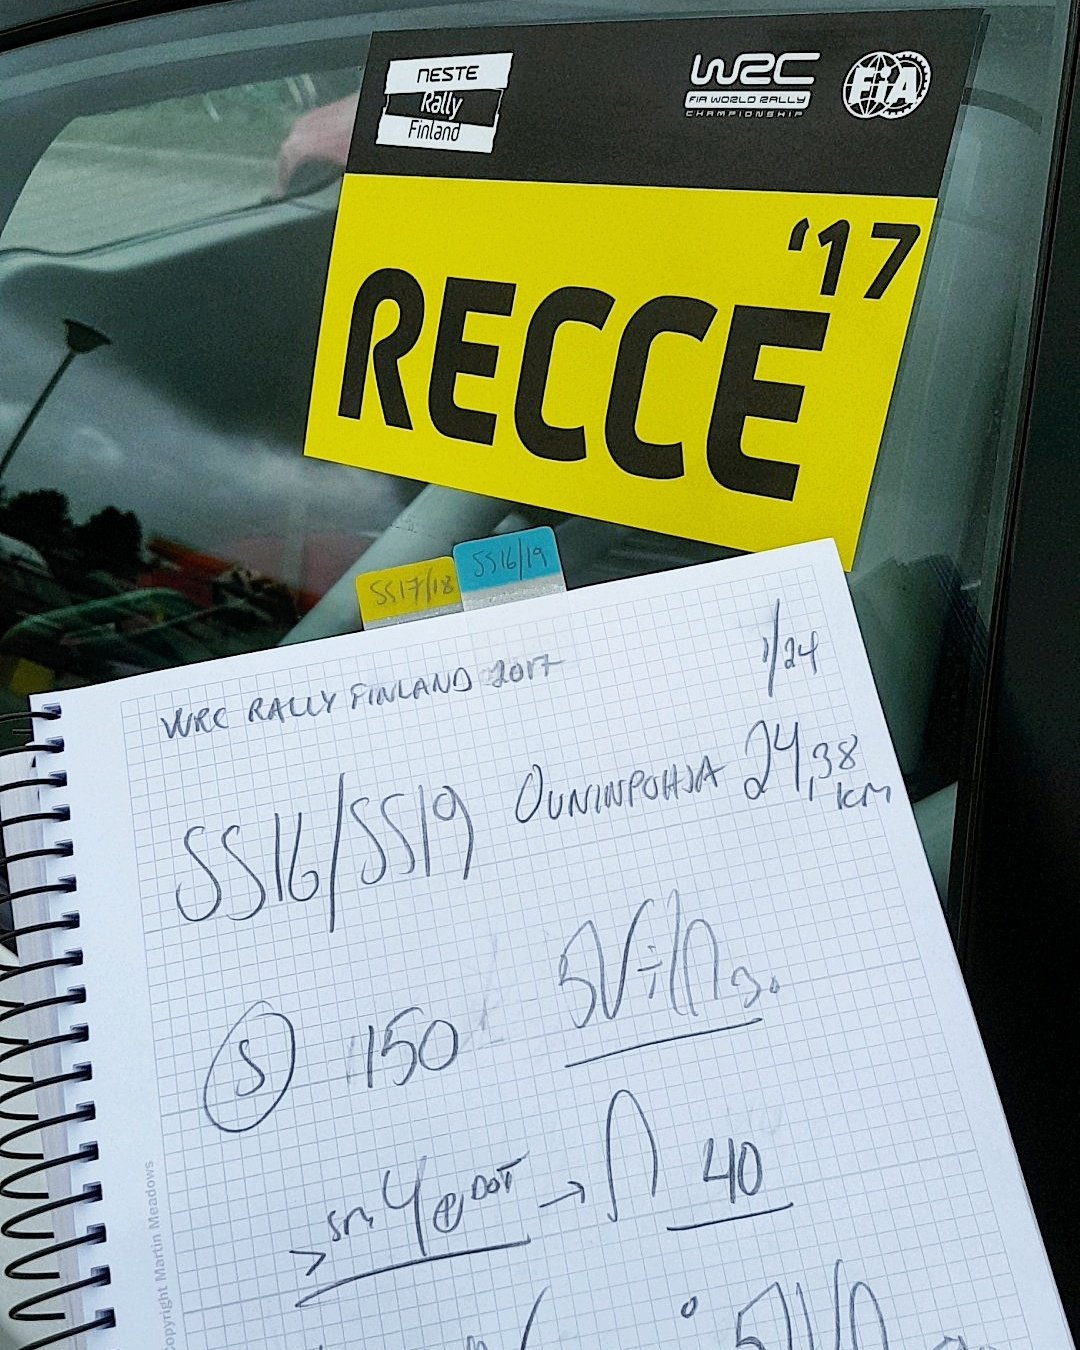 NESTE
Rally
Finland
WRC
FIA WORLD RALLY
CHAMPIONSHIP
FiA
'17
RECCE
SS17/18
SS16/19
WRC RALLY FINLAND 2017
1/24
SS16/SS19 OUNINPOHJA 24,38 km
S 150
> sm 4 DOT → 40
Copyright Martin Meadows